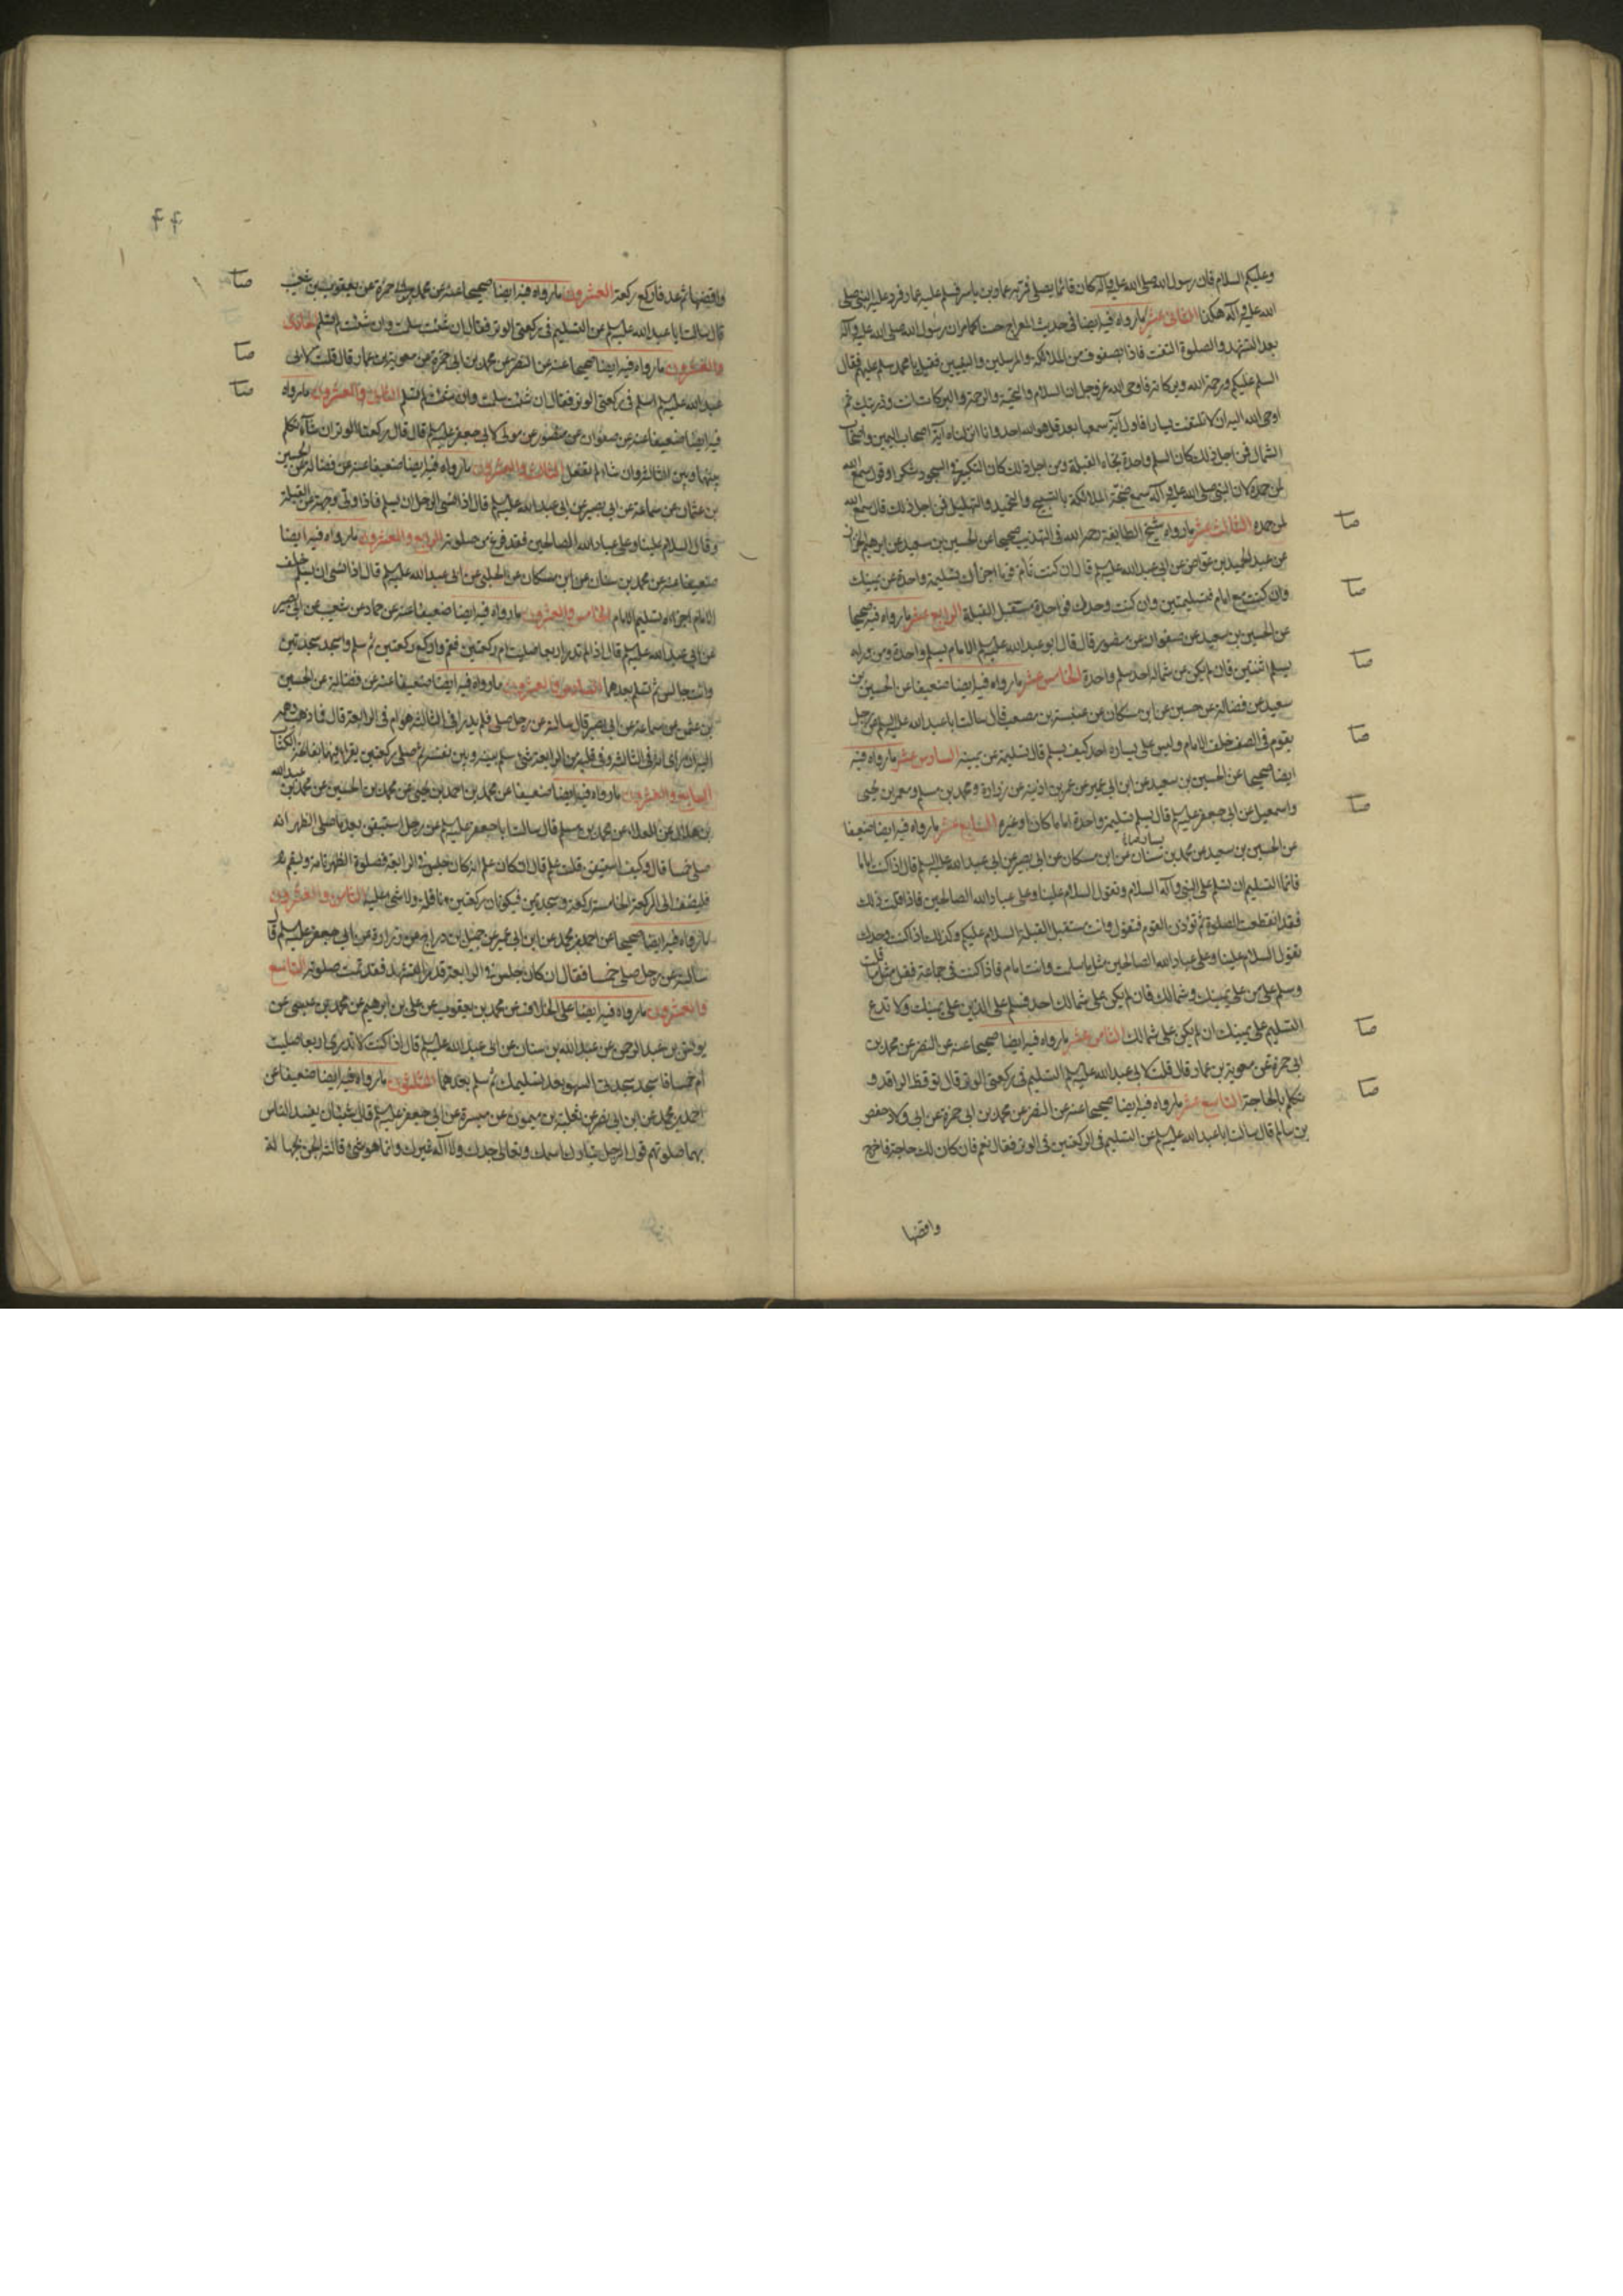 وعليكم السلام فان رسول الله صلى الله عليه وآله كان قائما يصلى فمر به عمار بن ياسر فسلم عليه عمار فرد عليه النبى صلى
الله عليه وآله هكذا الثانى عشر ما رواه فيه ايضا فى حديث المعراج رسول الله صلى الله عليه وآله
بعد التشهد والصلوة التفت فاذا بصفوف من الملائكة والمرسلين والنبيين فقيل يا محمد سلم عليهم فقال
السلم عليكم ورحمة الله وبركاته فاوحى الله عز وجل ان السلام والتحية والرحمة والبركات انت وذريتك ثم
اوحى الله اليه ان لا تلتفت يسارا فاول آية سمعها بعد قل هو الله احد وانا انزلناه آية اصحاب اليمين واصحاب
الشمال فمن اجل ذلك كان السلم واحدة تجاه القبلة ومن اجل ذلك كان التكبير فى السجود شكرا وقوله سمع الله
لمن حمده لان النبى صلى الله عليه وآله سمع ضجة الملائكة بالتسبيح والتحميد والتهليل فمن اجل ذلك قال سمع الله
لمن حمده الثالث عشر ما رواه شيخ الطايفة رحمه الله فى التهذيب صحيحا عن الحسين بن سعيد عن ابرهيم الخزاز
عن عبد الحميد بن عواض عن ابى عبد الله عليه السلم قال ان كنت تؤم قوما اجزأك تسليمة واحدة عن يمينك
وان كنت مع امام فتسليمتين وان كنت وحدك فواحدة مستقبل القبلة الرابع عشر ما رواه فيه صحيحا
عن الحسين بن سعيد عن صفوان عن منصور قال قال ابو عبد الله عليه السلم الامام يسلم واحدة ومن وراه
يسلم اثنتين فان لم يكن عن شماله احد سلم واحدة الخامس عشر ما رواه فيه ايضا ضعيفا عن الحسين بن
سعيد عن فضالة عن حسين عن ابن مسكان عن عنبسة بن مصعب قال سالت ابا عبد الله عليه السلم عن رجل
يقوم فى الصف خلف الامام وليس على يساره احد كيف يسلم قال تسليمة عن يمينه السادس عشر ما رواه فيه
ايضا صحيحا عن الحسين بن سعيد عن ابن ابى عمير عن عمر بن اذينة عن زرارة ومحمد بن مسلم ومعمر بن يحيى
واسمعيل عن ابى جعفر عليه السلم قال يسلم تسليمة واحدة اماما كان او غيره السابع عشر ما رواه فيه ايضا ضعيفا
عن الحسين بن سعيد عن محمد بن سنان عن ابن مسكان عن ابى بصير عن ابى عبد الله عليه السلم قال اذا كنت اماما
فانما التسليم ان تسلم على النبى وآله السلام وتقول السلام علينا وعلى عباد الله الصالحين فاذا قلت ذلك
فقد انقطعت الصلوة ثم تؤذن القوم فتقول وانت مستقبل القبلة السلام عليكم وكذلك اذا كنت وحدك
تقول السلام علينا وعلى عباد الله الصالحين مثل ما سلمت وانت امام فاذا كنت فى جماعة فقل مثل ما قلت
وسلم على من على يمينك وشمالك فان لم يكن على شمالك احد فسلم على الذين على يمينك ولا تدع
التسليم على يمينك ان لم يكن على شمالك الثامن عشر ما رواه فيه ايضا صحيحا عنه عن النضر عن محمد بن
ابى حمزة عن معوية بن عمار قال قلت لابى عبد الله عليه السلم التسليم فى ركعتى الوتر قال توقظ الراقد و
تكلم بالحاجة التاسع عشر ما رواه فيه ايضا صحيحا عنه عن النضر عن محمد بن ابى حمزة عن ابى ولاد حفص
بن سالم قال سالت ابا عبد الله عليه السلم عن التسليم فى الركعتين فى الوتر فقال نعم فان كان لك حاجة فاخرج
واقضها
٤٤
واقضها ثم عد فاركع ركعة العشرون ما رواه فيه ايضا صحيحا عنه عن محمد بن ابى حمزة عن يعقوب بن شعيب
قال سالت ابا عبد الله عليه السلم عن التسليم فى ركعتى الوتر فقال ان شئت سلمت وان شئت لم تسلم الحادى
والعشرون ما رواه فيه ايضا صحيحا عنه عن النضر عن محمد بن ابى حمزة عن معوية بن عمار قال قلت لابى
عبد الله عليه السلم اسلم فى ركعتى الوتر فقال ان شئت سلمت وان شئت لم تسلم الثانى والعشرون ما رواه
فيه ايضا ضعيفا عنه عن صفوان عن منصور عن مولى لابى جعفر عليه السلم قال قال ركعتا الوتر ان شاء تكلم
بينهما وبين الثالثة وان شاء لم يفعل الثالث والعشرون ما رواه فيه ايضا ضعيفا عنه عن فضالة عن الحسين
بن عثمان عن سماعة عن ابى بصير عن ابى عبد الله عليه السلم قال اذا نسى الرجل ان يسلم فاذا ولى وجهه عن القبلة
وقال السلام علينا وعلى عباد الله الصالحين فقد فرغ من صلوته الرابع والعشرون ما رواه فيه ايضا
ضعيفا عنه عن محمد بن سنان عن ابن مسكان عن الحلبى عن ابى عبد الله عليه السلم قال اذا نسى ان يسلم خلف
الامام اجزأه تسليم الامام الخامس والعشرون ما رواه فيه ايضا ضعيفا عنه عن حماد عن شعيب عن ابى بصير
عن ابى عبد الله عليه السلم قال اذا لم تدر اربعا صليت ام ركعتين فقم واركع ركعتين ثم سلم واسجد سجدتين
وانت جالس ثم تسلم بعدهما السادس والعشرون ما رواه فيه ايضا ضعيفا عنه عن فضالة عن الحسين
بن عثمن عن سماعة عن ابى بصير قال سالته عن رجل صلى فلم يدر افى الثالثة هو ام فى الرابعة قال فما ذهب وهمه
اليه ان راى انه فى الثالثة وفى قلبه من الرابعة شئ سلم بينه وبين نفسه ثم صلى ركعتين يقرا فيهما بفاتحة الكتاب
السابع والعشرون ما رواه فيه ايضا ضعيفا عن محمد بن احمد بن يحيى عن محمد بن الحسين عن محمد بن عبد الله
بن هلال عن العلاء عن محمد بن مسلم قال سالت ابا جعفر عليه السلم عن رجل استيقن بعد ما صلى الظهر انه
صلى خمسا قال وكيف استيقن قلت علم قال ان كان علم انه كان جلس فى الرابعة فصلوة الظهر تامة وليقم
فليضف الى الركعة الخامسة ركعة وسجدتين فيكونان ركعتين نافلة ولا شئ عليه الثامن والعشرون
ما رواه فيه ايضا صحيحا عن احمد بن محمد عن ابن ابى عمير عن جميل بن دراج عن زرارة عن ابى جعفر عليه السلم قا
سالته عن رجل صلى خمسا فقال ان كان جلس فى الرابعة قدر التشهد فقد تمت صلوته التاسع
والعشرون ما رواه فيه ايضا على الخلاف عن محمد بن يعقوب عن على بن ابرهيم عن محمد بن عيسى عن
يونس بن عبد الرحمن عن عبد الله بن سنان عن ابى عبد الله عليه السلم قال اذا كنت لا تدرى اربعا صليت
ام خمسا فاسجد سجدتى السهو بعد تسليمك ثم سلم بعدهما الثلثون ما رواه فيه ايضا ضعيفا عن
احمد بن محمد عن ابن ابى نصر عن ثعلبة بن ميمون عن ميسرة عن ابى جعفر عليه السلم قال شيئان يفسد الناس
بهما صلوتهم قول الرجل تبارك اسمك وتعالى جدك ولا اله غيرك وانما هو شئ قالت الجن بجهالة